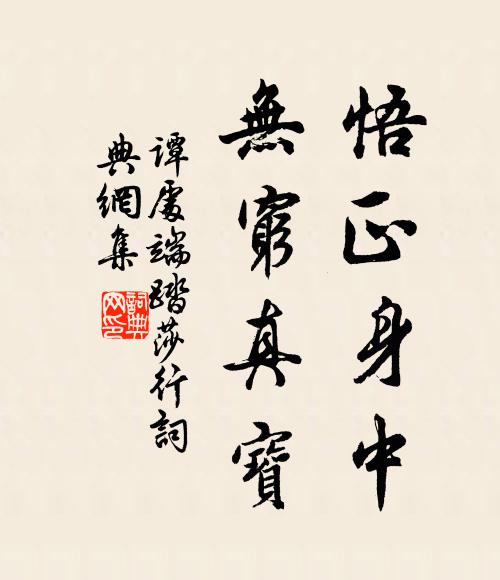 悟正身中
無窮真寶
譚處端踏莎行詞
典網集
詞典網印